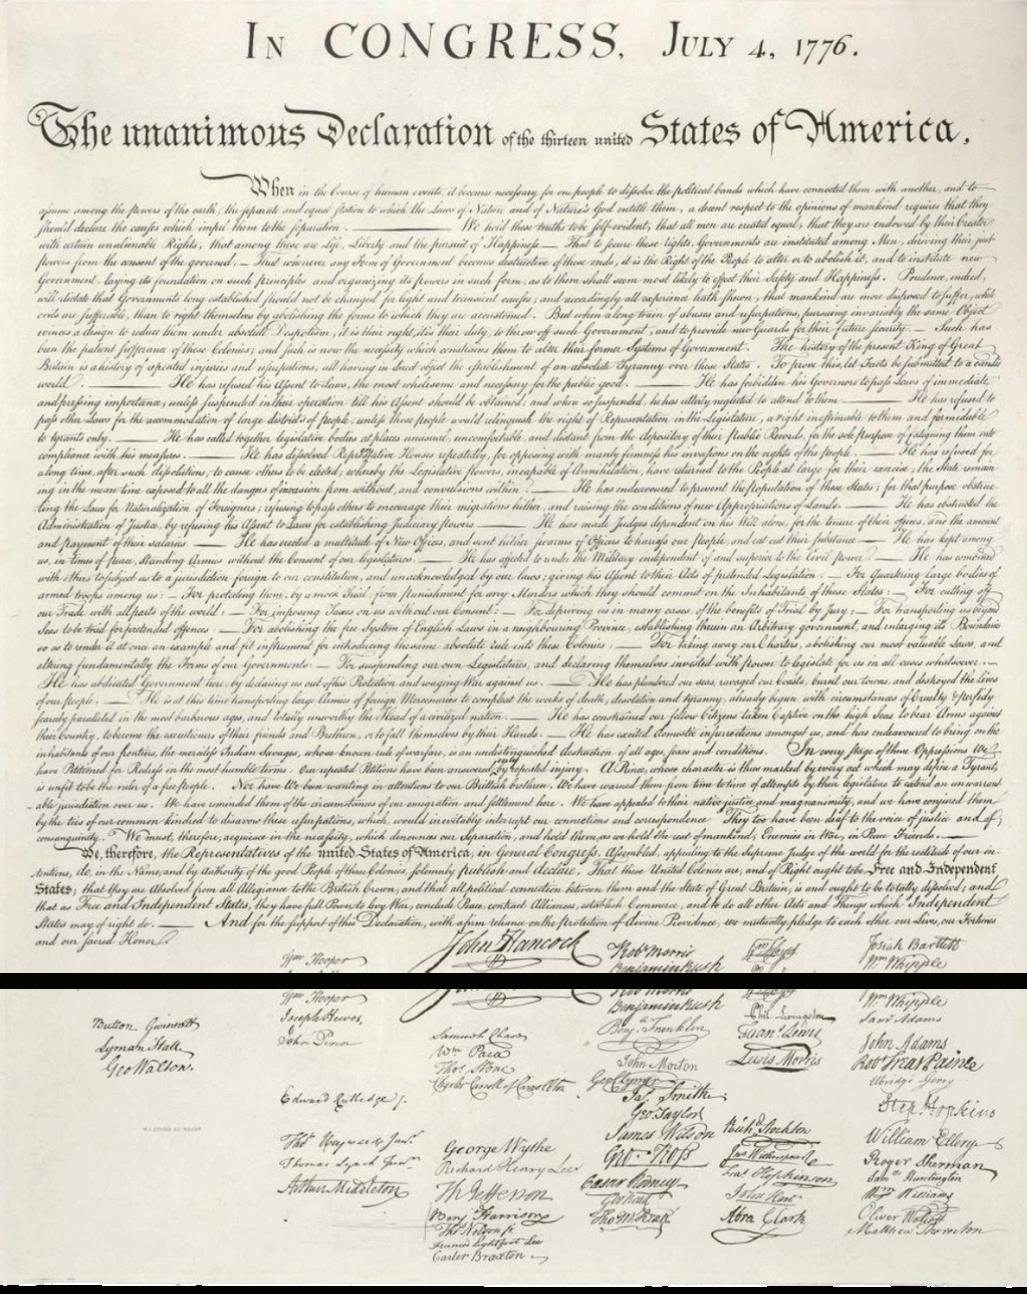 IN CONGRESS, JULY 4, 1776.
The unanimous Declaration of the thirteen united States of America,
When in the Course of human events, it becomes necessary for one people to dissolve the political bands which have connected them with another, and to
assume among the powers of the earth, the separate and equal station to which the Laws of Nature and of Nature's God entitle them, a decent respect to the opinions of mankind requires that they
should declare the causes which impel them to the separation. — We hold these truths to be self-evident, that all men are created equal, that they are endowed by their Creator
with certain unalienable Rights, that among these are Life, Liberty and the pursuit of Happiness — That to secure these rights, Governments are instituted among Men, deriving their just
powers from the consent of the governed, — That whenever any Form of Government becomes destructive of these ends, it is the Right of the People to alter or to abolish it, and to institute new
Government, laying its foundation on such principles and organizing its powers in such form, as to them shall seem most likely to effect their Safety and Happiness. Prudence, indeed,
will dictate that Governments long established should not be changed for light and transient causes; and accordingly all experience hath shewn, that mankind are more disposed to suffer, while
evils are sufferable, than to right themselves by abolishing the forms to which they are accustomed. But when a long train of abuses and usurpations, pursuing invariably the same Object
evinces a design to reduce them under absolute Despotism, it is their right, it is their duty, to throw off such Government, and to provide new Guards for their future security. — Such has
been the patient sufferance of these Colonies; and such is now the necessity which constrains them to alter their former Systems of Government. The history of the present King of Great
Britain is a history of repeated injuries and usurpations, all having in direct object the establishment of an absolute Tyranny over these States. To prove this, let Facts be submitted to a candid
world. — He has refused his Assent to Laws, the most wholesome and necessary for the public good. — He has forbidden his Governors to pass Laws of immediate
and pressing importance, unless suspended in their operation till his Assent should be obtained; and when so suspended, he has utterly neglected to attend to them. — He has refused to
pass other Laws for the accommodation of large districts of people, unless those people would relinquish the right of Representation in the Legislature, a right inestimable to them and formidable
to tyrants only. — He has called together legislative bodies at places unusual, uncomfortable, and distant from the depository of their Public Records, for the sole purpose of fatiguing them into
compliance with his measures. — He has dissolved Representative Houses repeatedly, for opposing with manly firmness his invasions on the rights of the people. — He has refused for
a long time, after such dissolutions, to cause others to be elected; whereby the Legislative powers, incapable of Annihilation, have returned to the People at large for their exercise; the State remain
ing in the mean time exposed to all the dangers of invasion from without, and convulsions within. — He has endeavoured to prevent the population of these States; for that purpose obstruc
ting the Laws for Naturalization of Foreigners; refusing to pass others to encourage their migrations hither, and raising the conditions of new Appropriations of Lands. — He has obstructed the
Administration of Justice, by refusing his Assent to Laws for establishing Judiciary powers. — He has made Judges dependent on his Will alone, for the tenure of their offices, and the amount
and payment of their salaries. — He has erected a multitude of New Offices, and sent hither swarms of Officers to harass our people, and eat out their substance. — He has kept among
us, in times of peace, Standing Armies without the Consent of our legislatures. — He has affected to render the Military independent of and superior to the Civil power. — He has combined
with others to subject us to a jurisdiction foreign to our constitution, and unacknowledged by our laws; giving his Assent to their Acts of pretended Legislation: — For Quartering large bodies of
armed troops among us: — For protecting them, by a mock Trial, from punishment for any Murders which they should commit on the Inhabitants of these States: — For cutting off
our Trade with all parts of the world: — For imposing Taxes on us without our Consent: — For depriving us in many cases, of the benefits of Trial by Jury: — For transporting us beyond
Seas to be tried for pretended offences — For abolishing the free System of English Laws in a neighbouring Province, establishing therein an Arbitrary government, and enlarging its Boundaries
so as to render it at once an example and fit instrument for introducing the same absolute rule into these Colonies: — For taking away our Charters, abolishing our most valuable Laws, and
altering fundamentally the Forms of our Governments: — For suspending our own Legislatures, and declaring themselves invested with power to legislate for us in all cases whatsoever. —
He has abdicated Government here, by declaring us out of his Protection and waging War against us. — He has plundered our seas, ravaged our Coasts, burnt our towns, and destroyed the lives
of our people. — He is at this time transporting large Armies of foreign Mercenaries to compleat the works of death, desolation and tyranny, already begun with circumstances of Cruelty & perfidy
scarcely paralleled in the most barbarous ages, and totally unworthy the Head of a civilized nation. — He has constrained our fellow Citizens taken Captive on the high Seas to bear Arms against
their Country, to become the executioners of their friends and Brethren, or to fall themselves by their Hands. — He has excited domestic insurrections amongst us, and has endeavoured to bring on the
inhabitants of our frontiers, the merciless Indian Savages, whose known rule of warfare, is an undistinguished destruction of all ages, sexes and conditions. In every stage of these Oppressions We
have Petitioned for Redress in the most humble terms: Our repeated Petitions have been answered only by repeated injury. A Prince, whose character is thus marked by every act which may define a Tyrant,
is unfit to be the ruler of a free people. Nor have We been wanting in attentions to our Brittish brethren. We have warned them from time to time of attempts by their legislature to extend an unwarrant
able jurisdiction over us. We have reminded them of the circumstances of our emigration and settlement here. We have appealed to their native justice and magnanimity, and we have conjured them
by the ties of our common kindred to disavow these usurpations, which, would inevitably interrupt our connections and correspondence They too have been deaf to the voice of justice and of
consanguinity. We must, therefore, acquiesce in the necessity, which denounces our Separation, and hold them, as we hold the rest of mankind, Enemies in War, in Peace Friends. —
We, therefore, the Representatives of the united States of America, in General Congress, Assembled, appealing to the Supreme Judge of the world for the rectitude of our in-
tentions, do, in the Name, and by Authority of the good People of these Colonies, solemnly publish and declare, That these United Colonies are, and of Right ought to be Free and Independent
States; that they are Absolved from all Allegiance to the British Crown, and that all political connection between them and the State of Great Britain, is and ought to be totally dissolved; and
that as Free and Independent States, they have full Power to levy War, conclude Peace, contract Alliances, establish Commerce, and to do all other Acts and Things which Independent
States may of right do. — And for the support of this Declaration, with a firm reliance on the protection of divine Providence, we mutually pledge to each other our Lives, our Fortunes
and our sacred Honor.
John Hancock
Robt Morris
Josiah Bartlett
Wm Hooper
Benjamin Rush
Wm Whipple
Wm Hooper
Robt Morris
Wm Whipple
Joseph Hewes,
Benjamin Rush
Phil. Livingston
Saml Adams
Button Gwinnett
John Penn
Samuel Chase
Benja. Franklin
Frans. Lewis
John Adams
Lyman Hall
Wm Paca
John Morton
Lewis Morris
Robt Treat Paine
Geo Walton.
Thos. Stone
Geo Clymer
Elbridge Gerry
Charles Carroll of Carrollton
Jas. Smith.
Edward Rutledge /.
Geo. Taylor
Step. Hopkins
James Wilson
Richd. Stockton
William Ellery
Thos. Heyward Junr.
George Wythe
Geo. Ross
Jno Witherspoon
Roger Sherman
Thomas Lynch Junr.
Richard Henry Lee
Caesar Rodney
Fras. Hopkinson
Saml. Huntington
Arthur Middleton
Th Jefferson
Geo Read
John Hart
Wm. Williams
Benj. Harrison
Tho M:Kean
Abra Clark
Oliver Wolcott
Thos Nelson jr.
Matthew Thornton
Francis Lightfoot Lee
Carter Braxton